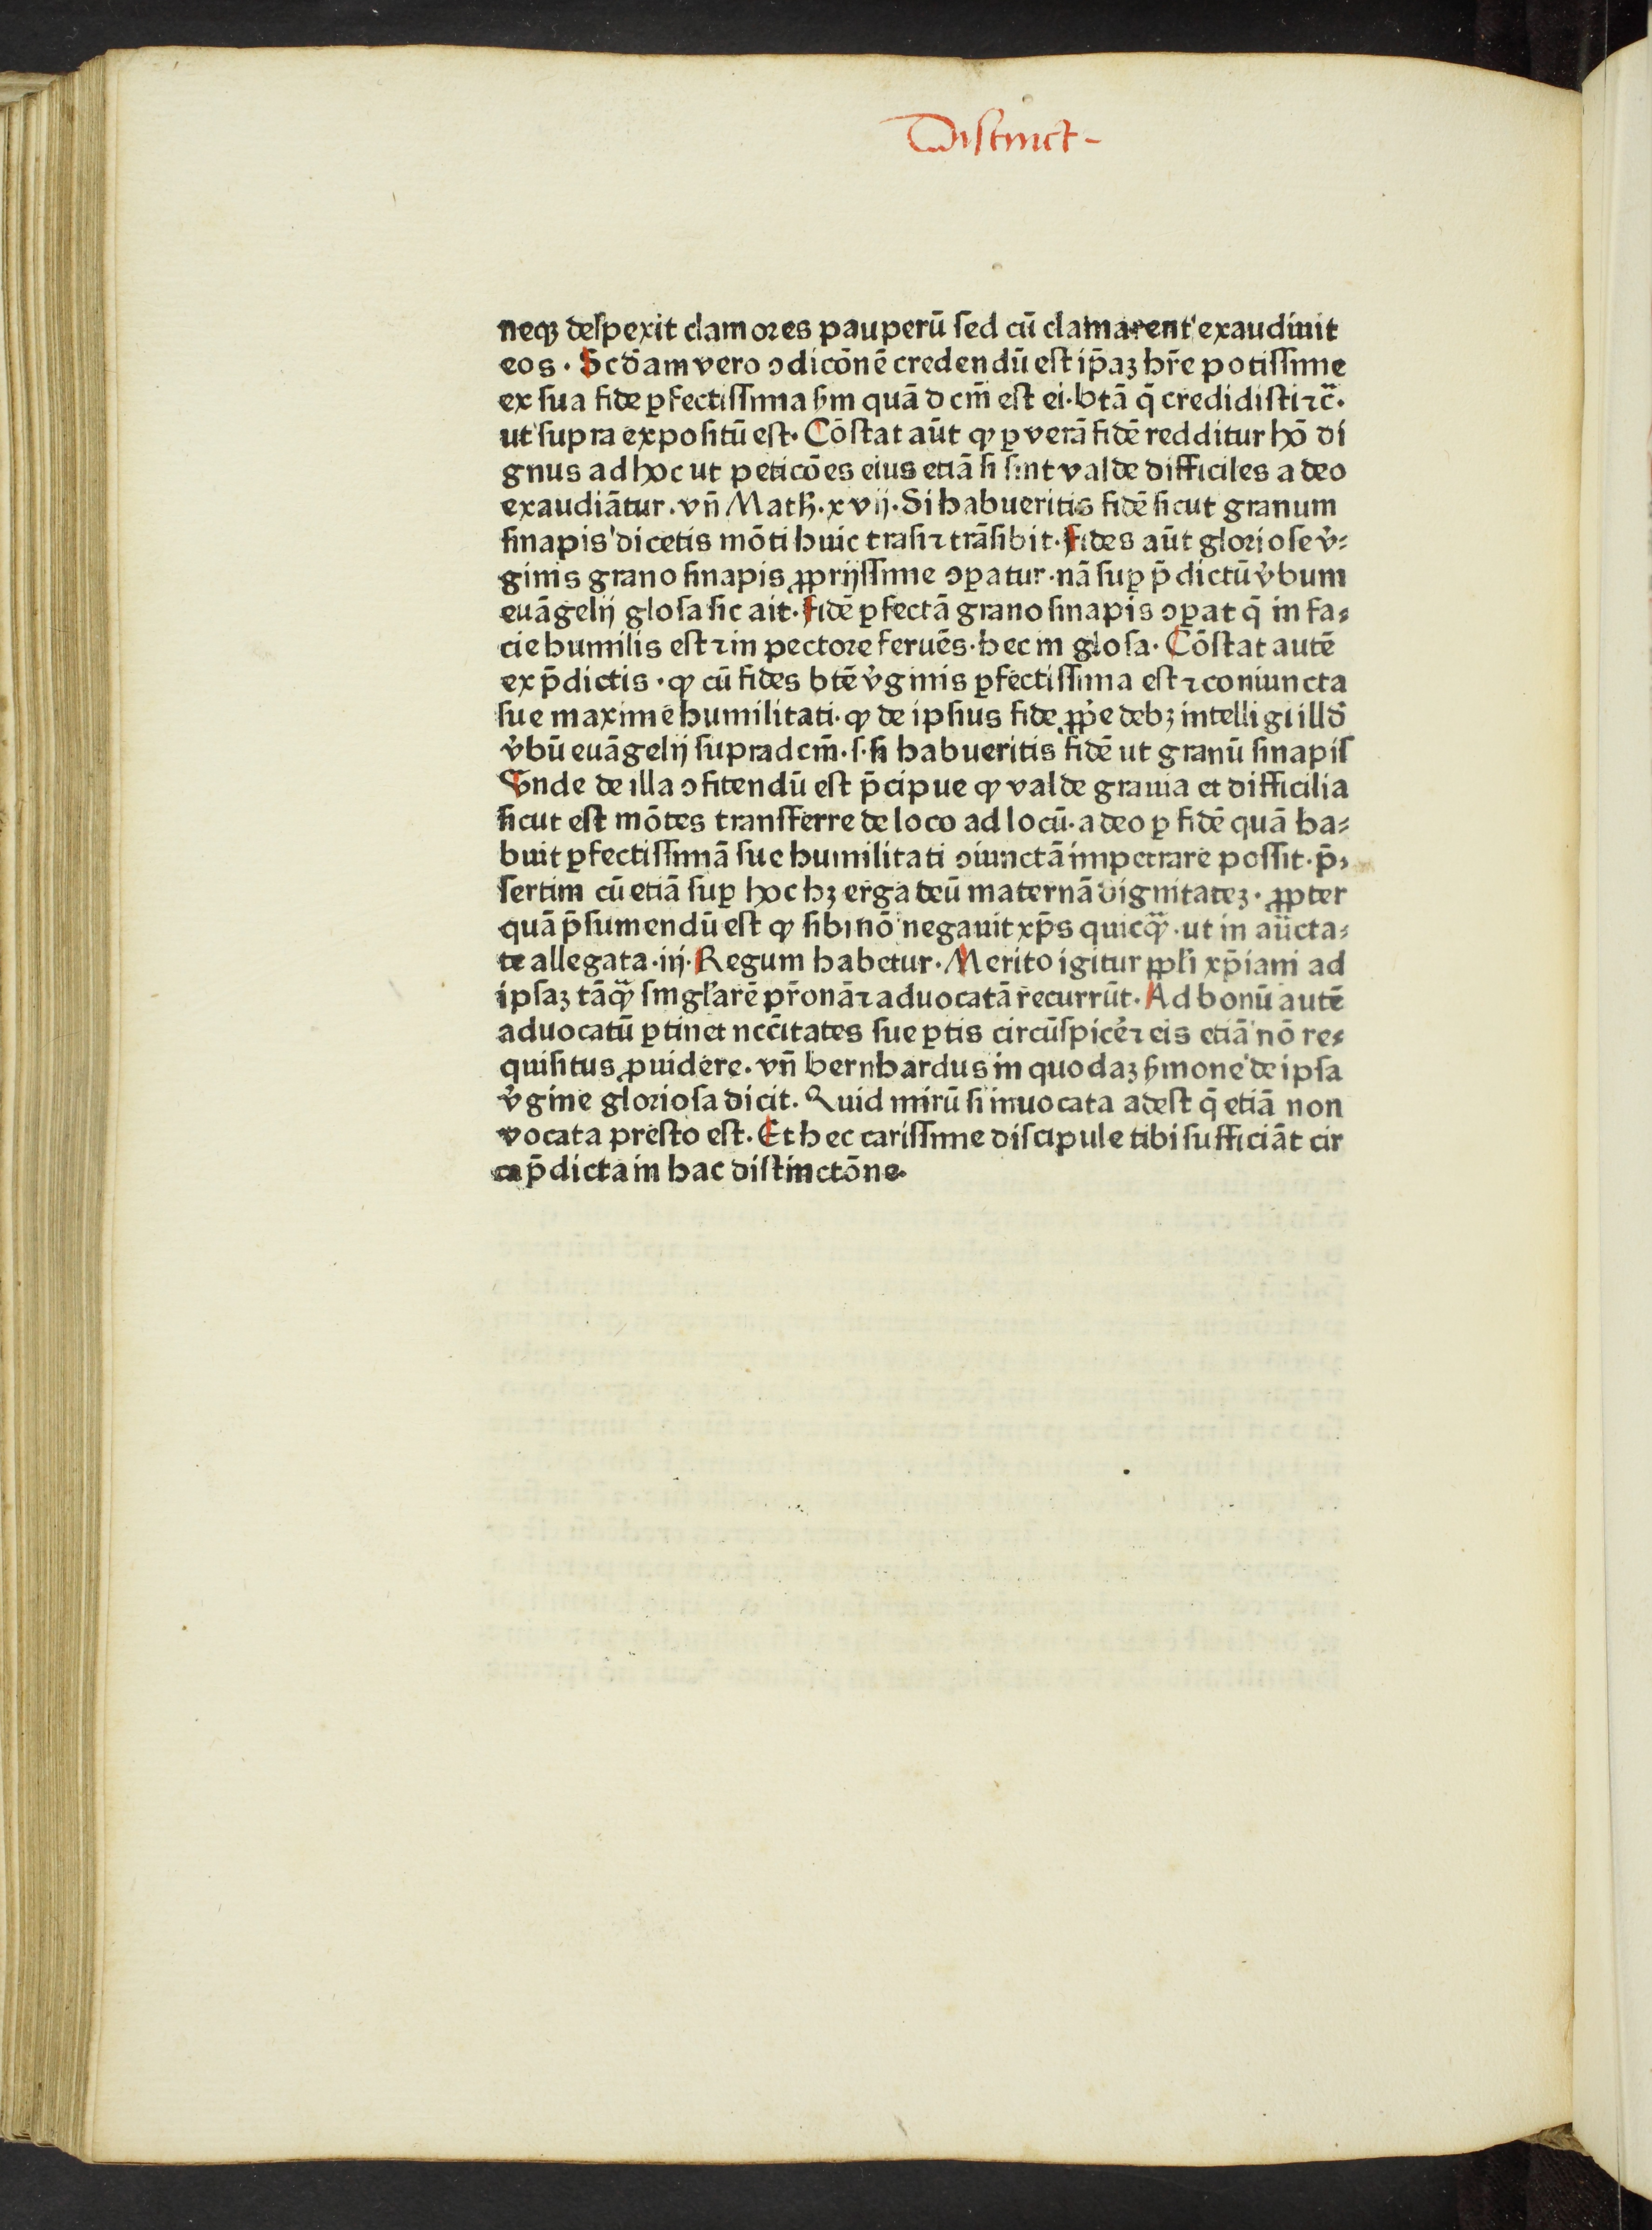 Distinct-
neqꝫ despexit clamores pauperū sed cū clamarent exaudiuit
eos. Scd̄am vero ꝯdicōnē credendū est ip̄aꝫ hr̄e potissime
ex sua fide ꝑfectissima ẜm quā d cm̄ est ei. btā q̄ credidisti ⁊c̄.
ut supra expositū est. Cōstat aūt ꝙ ꝑ verā fidē redditur hō di
gnus ad hoc ut peticōes eius etiā si sint valde difficiles a deo
exaudiātur. vn̄ Math̄. xvij. Si habueritis fidē sicut granum
sinapis dicetis mōti huic trāsi ⁊ trāsibit. Fides aūt gloriose v̓⸗
ginis grano sinapis ꝓprijssime ꝯꝑatur. nā suꝑ p̄dictū v̓bum
euāgelij glosa sic ait. Fidē ꝑfectā grano sinapis ꝯꝑat q̄ in fa⸗
cie humilis est ⁊ in pectore feruēs. hec in glosa. Cōstat autē
ex p̄dictis. ꝙ cū fides btē v̓ginis ꝑfectissima est ⁊ coniuncta
sue maxime humilitati. ꝙ de ipsius fide ꝓpe debꝫ intelligi illd̓
v̓bū euāgelij supradcm̄. s. si habueritis fidē ut granū sinapis
Unde de illa ꝯfitendū est p̄cipue ꝙ valde grauia et difficilia
sicut est mōtes transferre de loco ad locū. a deo ꝑ fidē quā ha⸗
buit ꝑfectissimā sue humilitati ꝯiunctā impetrare possit. p̄⸗
sertim cū etiā suꝑ hoc hꝫ erga deū maternā dignitateꝫ. ꝓpter
quā p̄sumendū est ꝙ sibi nō negauit xp̄s quicꝙ̄. ut in aūcta⸗
te allegata. iij. Regum habetur. Merito igitur ppl̓i xp̄iani ad
ipsaꝫ tāꝙ̄ singl̓arē pr̄onā ⁊ aduocatā recurrūt. Ad bonū autē
aduocatū ꝑtinet nccītates sue ꝑtis circūspicē ⁊ eis etiā nō re⸗
quisitus ꝓuidere. vn̄ bernhardus in quodaꝫ ẜmone de ipsa
v̓gine gloriosa dicit. Quid mirū si inuocata adest q̄ etiā non
vocata presto est. Et hec carissime discipule tibi sufficiāt cir
ca p̄dicta in hac distinctōne.